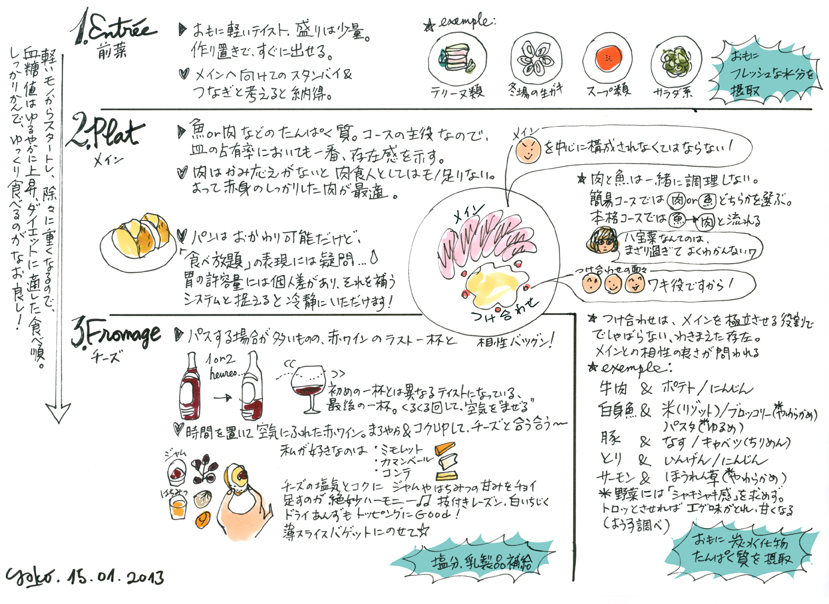 軽いモノからスタートし、除々に重くなるので、
血糖値はゆるやかに上昇。ダイエットに適した食べ順。
しっかりかんで、ゆっくり食べるのがなお良し!
1.Entrée
前菜
▶ おもに軽いテイスト、盛りは少量。
作り置きで、すぐに出せる。
♡ メインへ向けてのスタンバイ&
つなぎと考えると納得。
★exemple:
テリーヌ類
冬場の生ガキ
スープ類
サラダ系
おもに
フレッシュな水分を
摂取
2.Plat
メイン
▶ 魚or肉などのたんぱく質。コースの主役なので、
皿の占有率においても一番、存在感を示す。
♡ 肉はかみ応えがないと肉食人としてはモノ足りない。
よって赤身のしっかりした肉が最適。
♡ パンはおかわり可能だけど、
「食べ放題」の表現には疑問…
胃の許容量には個人差があり、それを補う
システムと捉えると冷静にいただけます!
メイン
つけ合わせ
メイン
を中心に構成されなくてはならない!
★肉と魚は一緒に調理しない。
簡易コースでは肉or魚どちらかを選ぶ。
本格コースでは魚→肉と流れる
八宝菜なんてのは、
まざり過ぎてよくわかんないワ
つけ合わせの面々
ワキ役ですから!
★つけ合わせは、メインを極立させる役割で
でしゃばらない、わきまえた存在。
メインとの相性の良さが問われる
★exemple:
牛肉 & ポテト/にんじん
白身魚 & 米(リゾット)/ブロッコリー(*やわらかめ)
パスタ(*ゆるめ)
豚 & なす/キャベツ(ちりめん)
とり & いんげん/にんじん
サーモン & ほうれん草(*やわらかめ)
*野菜には「シャキシャキ感」を求めず。
トロッとさせればエグ味がとれ、甘くなる
(ようす調べ)
おもに炭水化物
たんぱく質を摂取
3.Fromage
チーズ
▶ パスする場合が多いものの、赤ワインのラスト一杯と 相性バツグン!
1 or 2
heures...
初めの一杯とは異なるテイストになっている、
最後の一杯。くるくる回して、空気を"混ぜる"
♡時間を置いて空気にふれた赤ワイン。まろやか&コクUPして、チーズと合う合う〜
ジャム
はちみつ
私が好きなのは・ミモレット
・カマンベール
・コンテ
チーズの塩気とコクにジャムやはちみつの甘みをチョイ
足すのが絶妙ハーモニー♫ 枝付きレーズン、白いちじく
ドライあんずもトッピングにGood!
薄スライスバゲットにのせて☆
塩分、乳製品補給
yoko. 15.01.2013